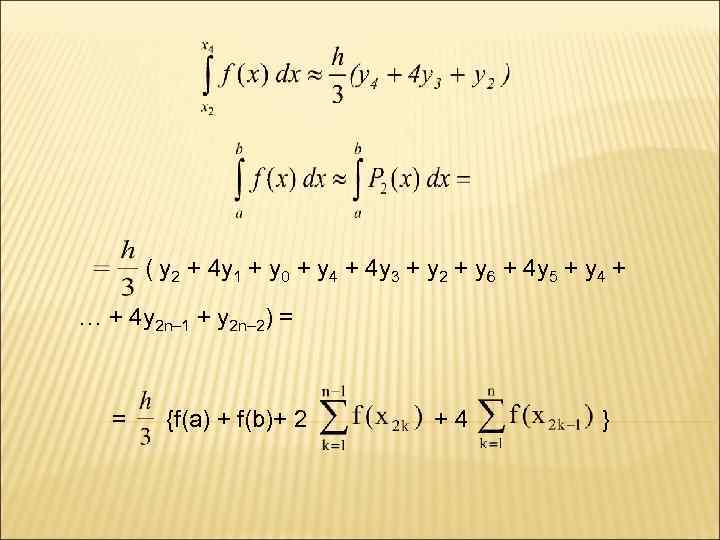 ∫_{x₂}^{x₄} f(x) dx ≈ h/3 (y₄ + 4y₃ + y₂ )
∫_{a}^{b} f(x) dx ≈ ∫_{a}^{b} P₂(x) dx =
= h/3 ( y₂ + 4y₁ + y₀ + y₄ + 4y₃ + y₂ + y₆ + 4y₅ + y₄ +
… + 4y₂ₙ₋₁ + y₂ₙ₋₂) =
= h/3 {f(a) + f(b)+ 2 ∑_{k=1}^{n−1} f(x_{2k}) + 4 ∑_{k=1}^{n} f(x_{2k−1}) }